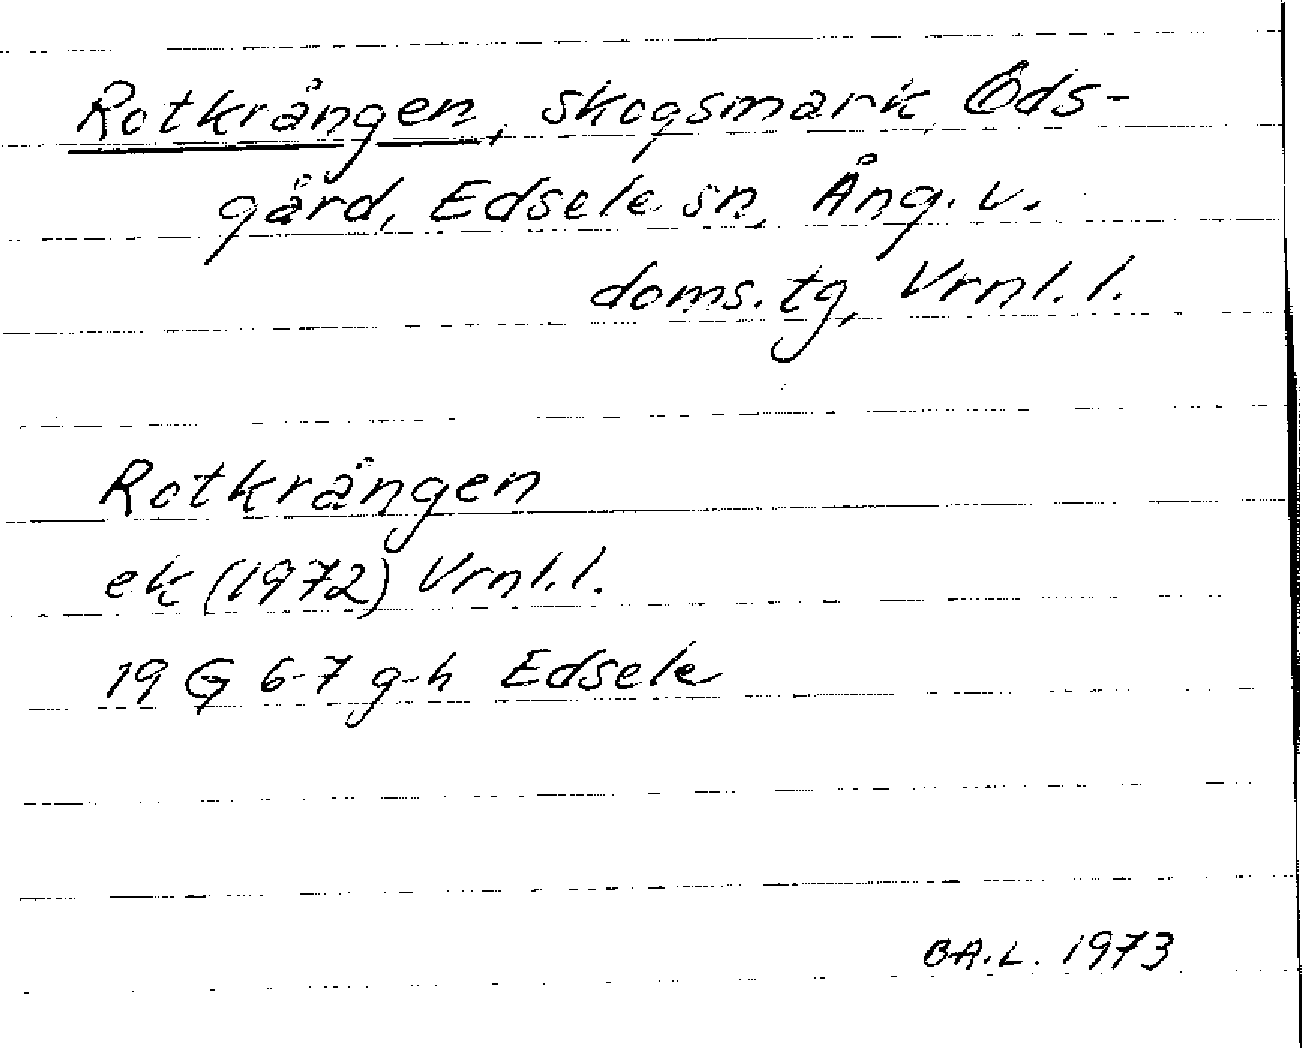 Rotkrången, skogsmark Öds-
gård, Edsele sn, Ång. v.
doms. tg, Vrnl. l.
Rotkrången
ek (1972) Vrnl. l.
19 G 6-7 g-h Edsele
BA.L. 1973